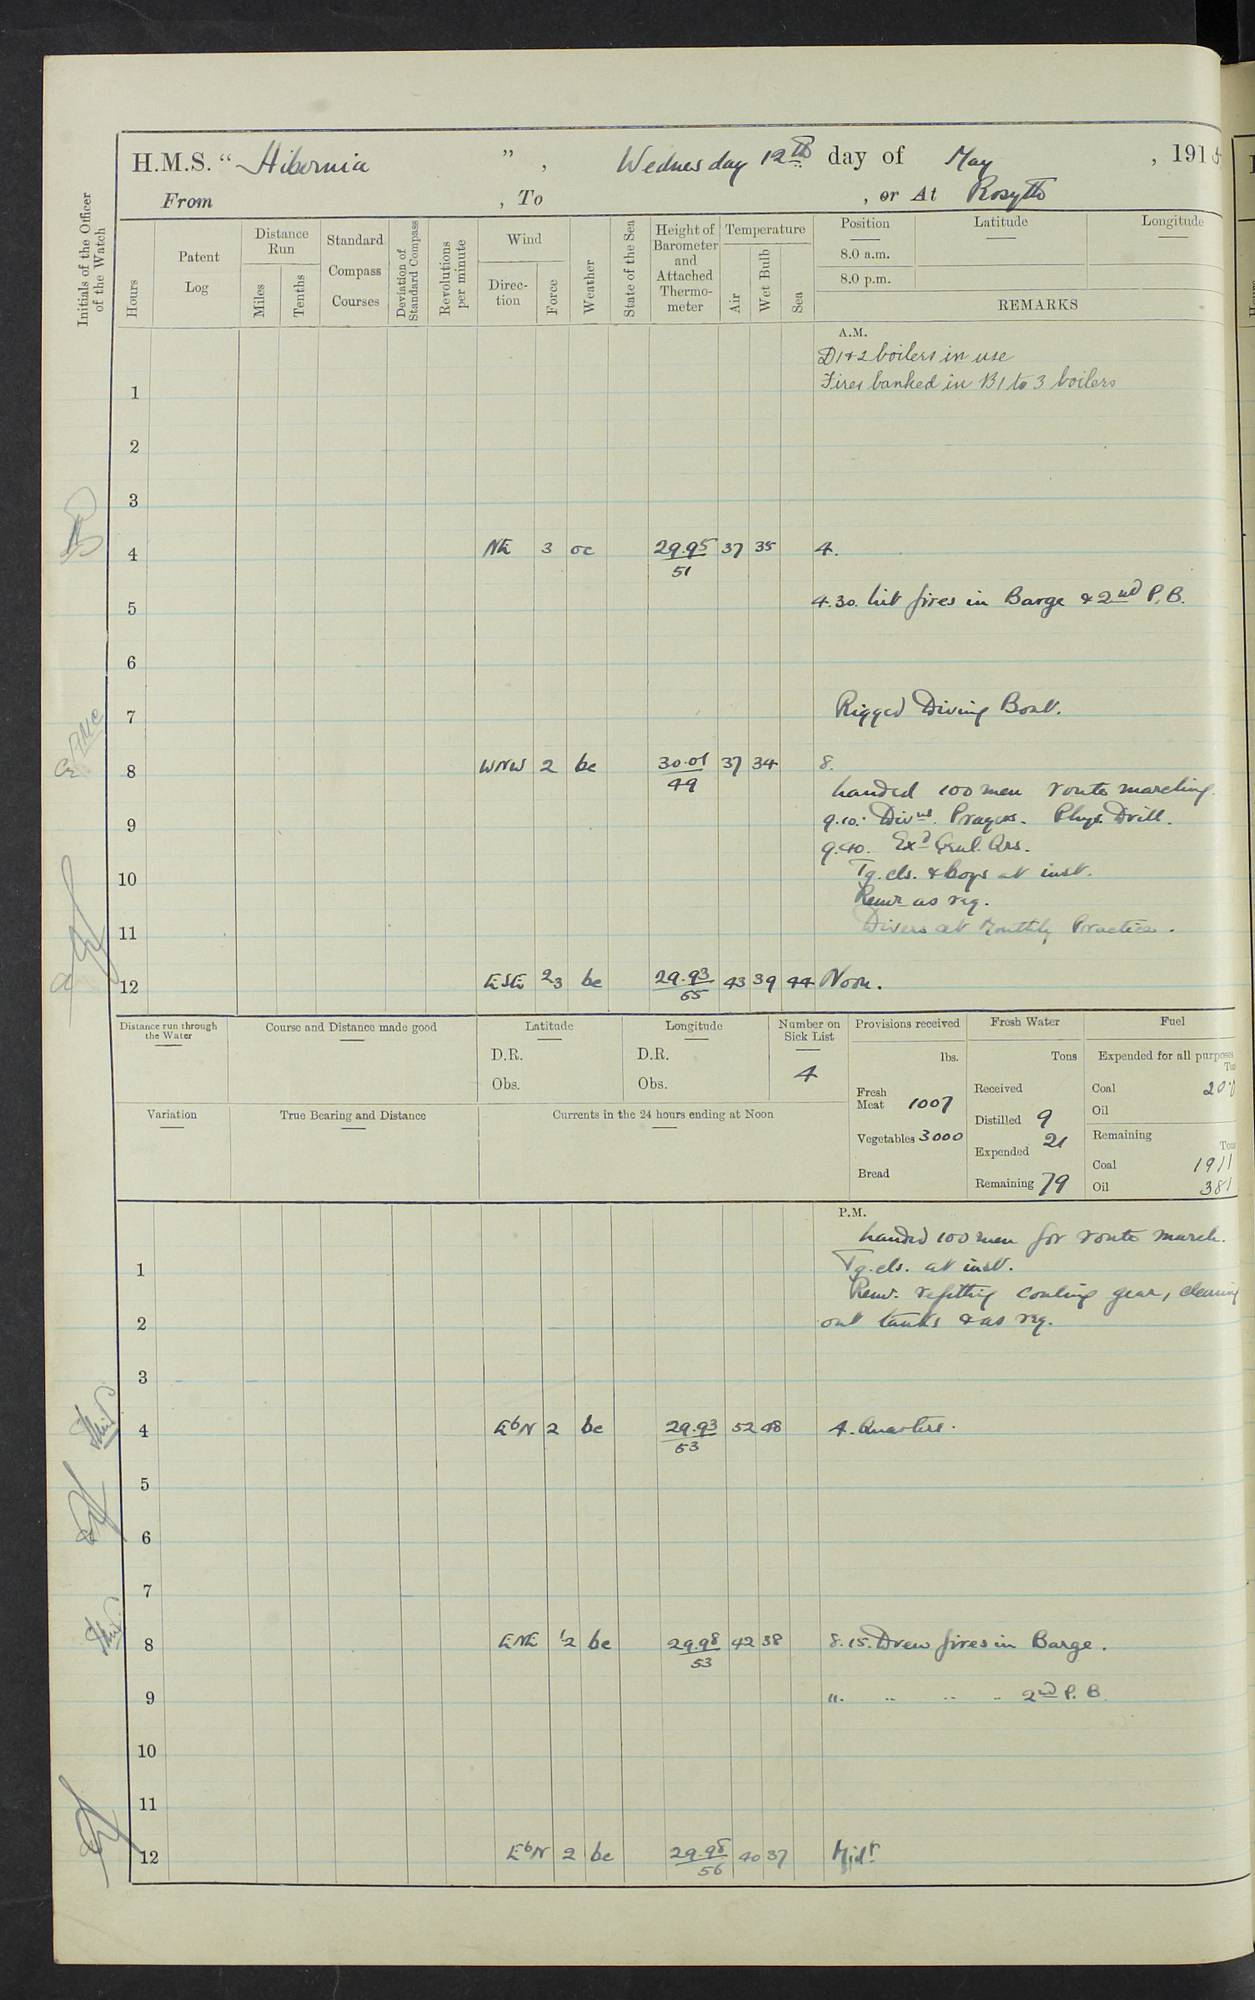 H.M.S. “ Hibernia ” , Wednesday 12th day of May , 1915
From , To , or At Rosyth
Initials of the Officer of the Watch
Hours
Patent Log
Distance Run
Miles
Tenths
Standard Compass Courses
Deviation of Standard Compass
Revolutions per minute
Wind
Direc-tion
Force
Weather
State of the Sea
Height of Barometer and Attached Thermo-meter
Temperature
Air
Wet Bulb
Sea
Position
Latitude
Longitude
8.0 a.m.
8.0 p.m.
REMARKS
A.M.
D1&2 boilers in use
1 Fires banked in B1 to 3 boilers
2
3
4 NE 3 oc 29.95 37 35 4.
51
5 4.30. Lit fires in Barge & 2nd P.B.
6
7 Rigged Diving Boat.
8 WNW 2 bc 30.01 37 34 8.
49
Landed 100 men route marching.
9 9.10. Divns. Prayers. Phys. Drill.
9.40. Exd Genl. Qrs.
10 Tg. cls. & boys at inst.
Remr as req.
11 Divers at Monthly Practice.
12 ESE 2 3 bc 29.93 43 39 44 Noon.
55
Distance run through the Water
Course and Distance made good
Latitude
D.R.
Obs.
Longitude
D.R.
Obs.
Number on Sick List
4
Provisions received
lbs.
Fresh Meat 1007
Vegetables 3000
Bread
Fresh Water
Tons
Received
Distilled 9
Expended 21
Remaining 79
Fuel
Expended for all purposes
Coal 20.0
Oil
Remaining
Coal 1911
Oil 381
Variation
True Bearing and Distance
Currents in the 24 hours ending at Noon
P.M.
Landed 100 men for route march.
1 Tg. cls. at inst.
Remr. refitting coaling gear, cleaning
2 out tanks & as req.
3
4 EbN 2 bc 29.93 52 48 4. Quarters.
53
5
6
7
8 ENE 1 2 bc 29.98 42 38 8.15. Drew fires in Barge.
53
9 " " " " 2nd P.B.
10
11
12 EbN 2 bc 29.98 40 37 Midt
56